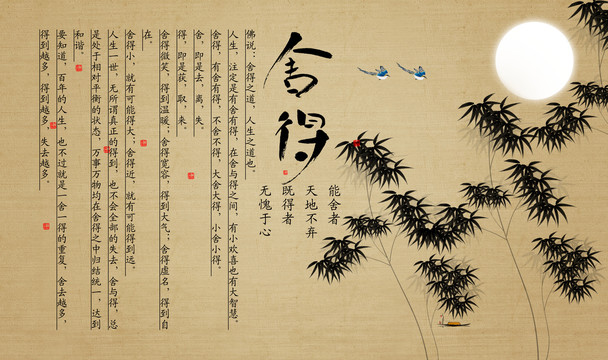 舍得
能舍者
天地不弃
既得者
无愧于心
佛说：舍得之道，人生之道也。
人生，注定是有舍有得，在舍与得之间，有小欢喜也有大智慧。
舍得，有舍有得，不舍不得，大舍大得，小舍小得。
舍，即是去，离，失。
得，即是获，取，来。
舍得微笑，得到温暖；舍得宽容，得到大气；舍得虚名，得到自
在。
舍得小，就有可能得大；舍得近，就有可能得到远。
人生一世，无所谓真正的得到，也不会全部的失去，舍与得，总
是处于相对平衡的状态，万事万物均在舍得之中归结统一，达到
和谐。
要知道，百年的人生，也不过就是一舍一得的重复，舍去越多，
得到越多，得到越多，失去越多。